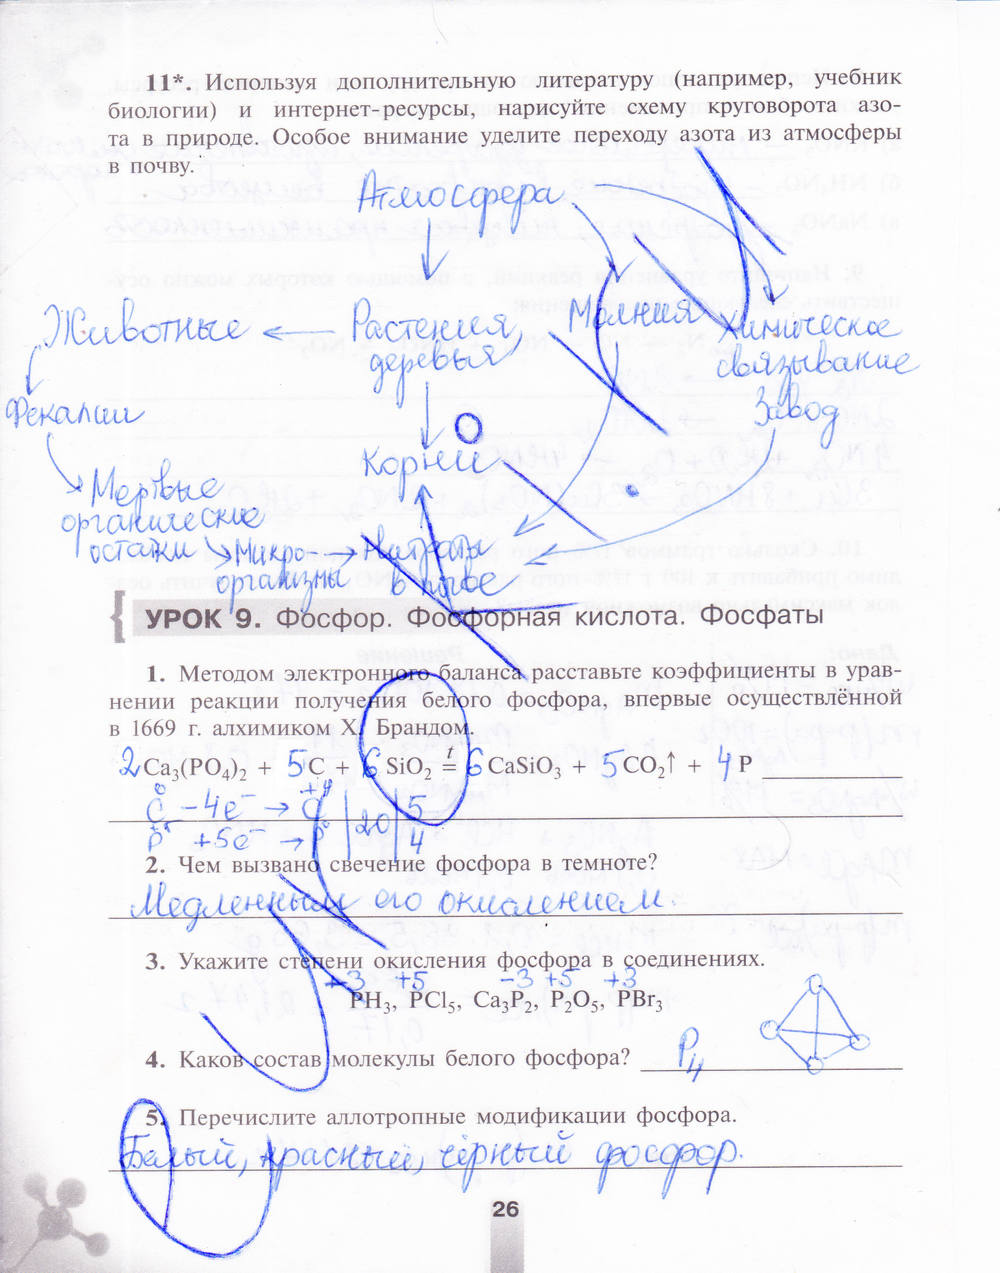 11*. Используя дополнительную литературу (например, учебник
биологии) и интернет-ресурсы, нарисуйте схему круговорота азо-
та в природе. Особое внимание уделите переходу азота из атмосферы
в почву.
Атмосфера
Животные
Растения,
деревья
Молния
Химическое
связывание
Завод
Фекалии
Корни
Мертвые
органические
остатки
Микро-
организмы
Нитраты
в почве
УРОК 9. Фосфор. Фосфорная кислота. Фосфаты
1. Методом электронного баланса расставьте коэффициенты в урав-
нении реакции получения белого фосфора, впервые осуществлённой
в 1669 г. алхимиком Х. Брандом.
2Ca₃(PO₄)₂ + 5C + 6SiO₂ =ᵗ 6CaSiO₃ + 5CO₂↑ + 4P
C⁰ −4e⁻ → C⁺⁴ | 20 | 5
P⁺⁵ +5e⁻ → P⁰ | 4
2. Чем вызвано свечение фосфора в темноте?
Медленным его окислением.
3. Укажите степени окисления фосфора в соединениях.
−3 +5 −3 +5 +3
PH₃, PCl₅, Ca₃P₂, P₂O₅, PBr₃
4. Каков состав молекулы белого фосфора? P₄
5. Перечислите аллотропные модификации фосфора.
Белый, красный, чёрный фосфор.
26